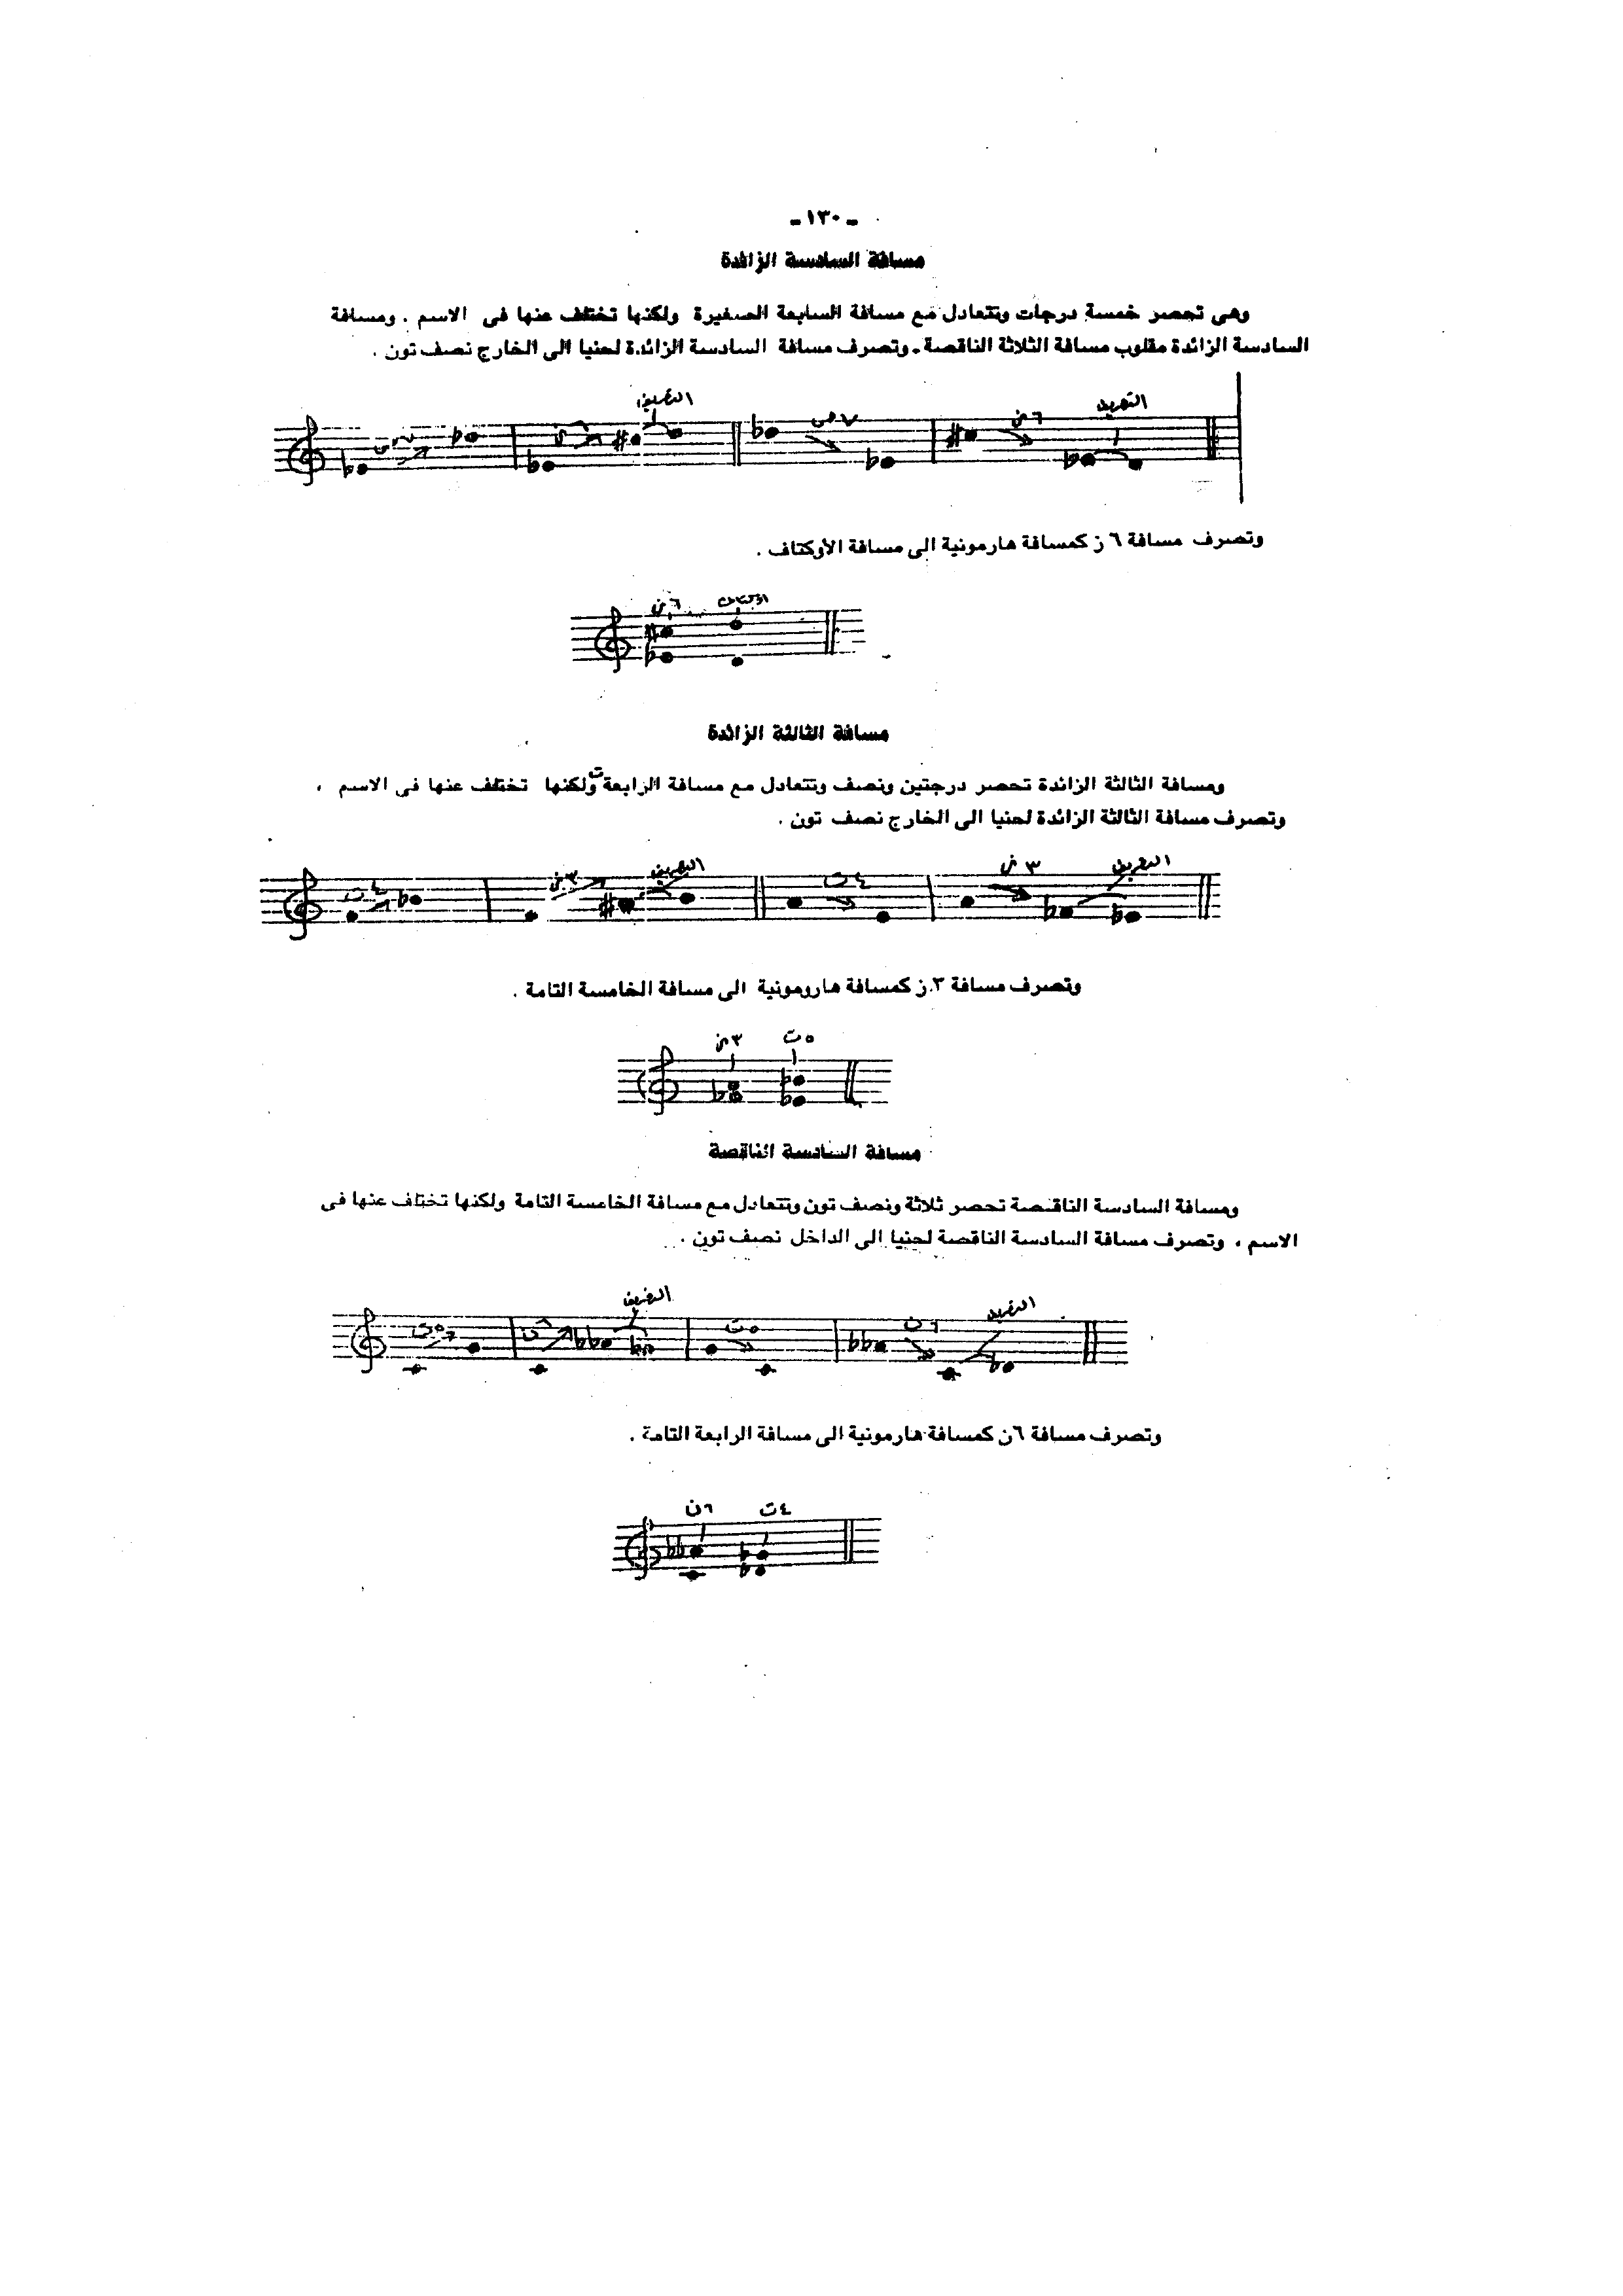 - ١٣٠ -
مسافة السادسة الزائدة
وهى تحصر خمسة درجات وتتعادل مع مسافة السابعة الصغيرة ولكنها تختلف عنها فى الاسم . ومسافة
السادسة الزائدة مقلوب مسافة الثلاثة الناقصة . وتصرف مسافة السادسة الزائدة لحنيا الى الخارج نصف تون .
التصريف
٧ص
٦ز
التصريف
وتصرف مسافة ٦ ز كمسافة هارمونية الى مسافة الأوكتاف .
٦ز
مسافة الثالثة الزائدة
ومسافة الثالثة الزائدة تحصر درجتين ونصف وتتعادل مع مسافة الرابعة ت ولكنها تختلف عنها فى الاسم ،
وتصرف مسافة الثالثة الزائدة لحنيا الى الخارج نصف تون .
٤ت
٣ز
التصريف
٤ت
٣ز
التصريف
وتصرف مسافة ٣ ز كمسافة هارومونية الى مسافة الخامسة التامة .
٣ز ٥ت
مسافة السادسة الناقصة
ومسافة السادسة الناقصة تحصر ثلاثة ونصف تون وتتعادل مع مسافة الخامسة التامة ولكنها تختلف عنها فى
الاسم ، وتصرف مسافة السادسة الناقصة لحنيا الى الداخل نصف تون .
٥ت
٦ن
التصريف
٥ت
٦ن
التصريف
وتصرف مسافة ٦ن كمسافة هارمونية الى مسافة الرابعة التامة .
٦ن ٤ت